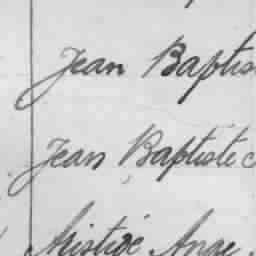 Jean Baptis
Jean Baptiste
Aristide Ange